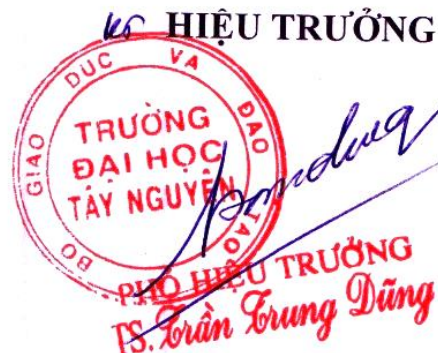 HIỆU TRƯỞNG
BO GIAO DUC VA ĐAO TAO
TRƯỜNG
ĐẠI HỌC
TÂY NGUYÊN
PHÓ HIỆU TRƯỞNG
TS. Trần Trung Dũng